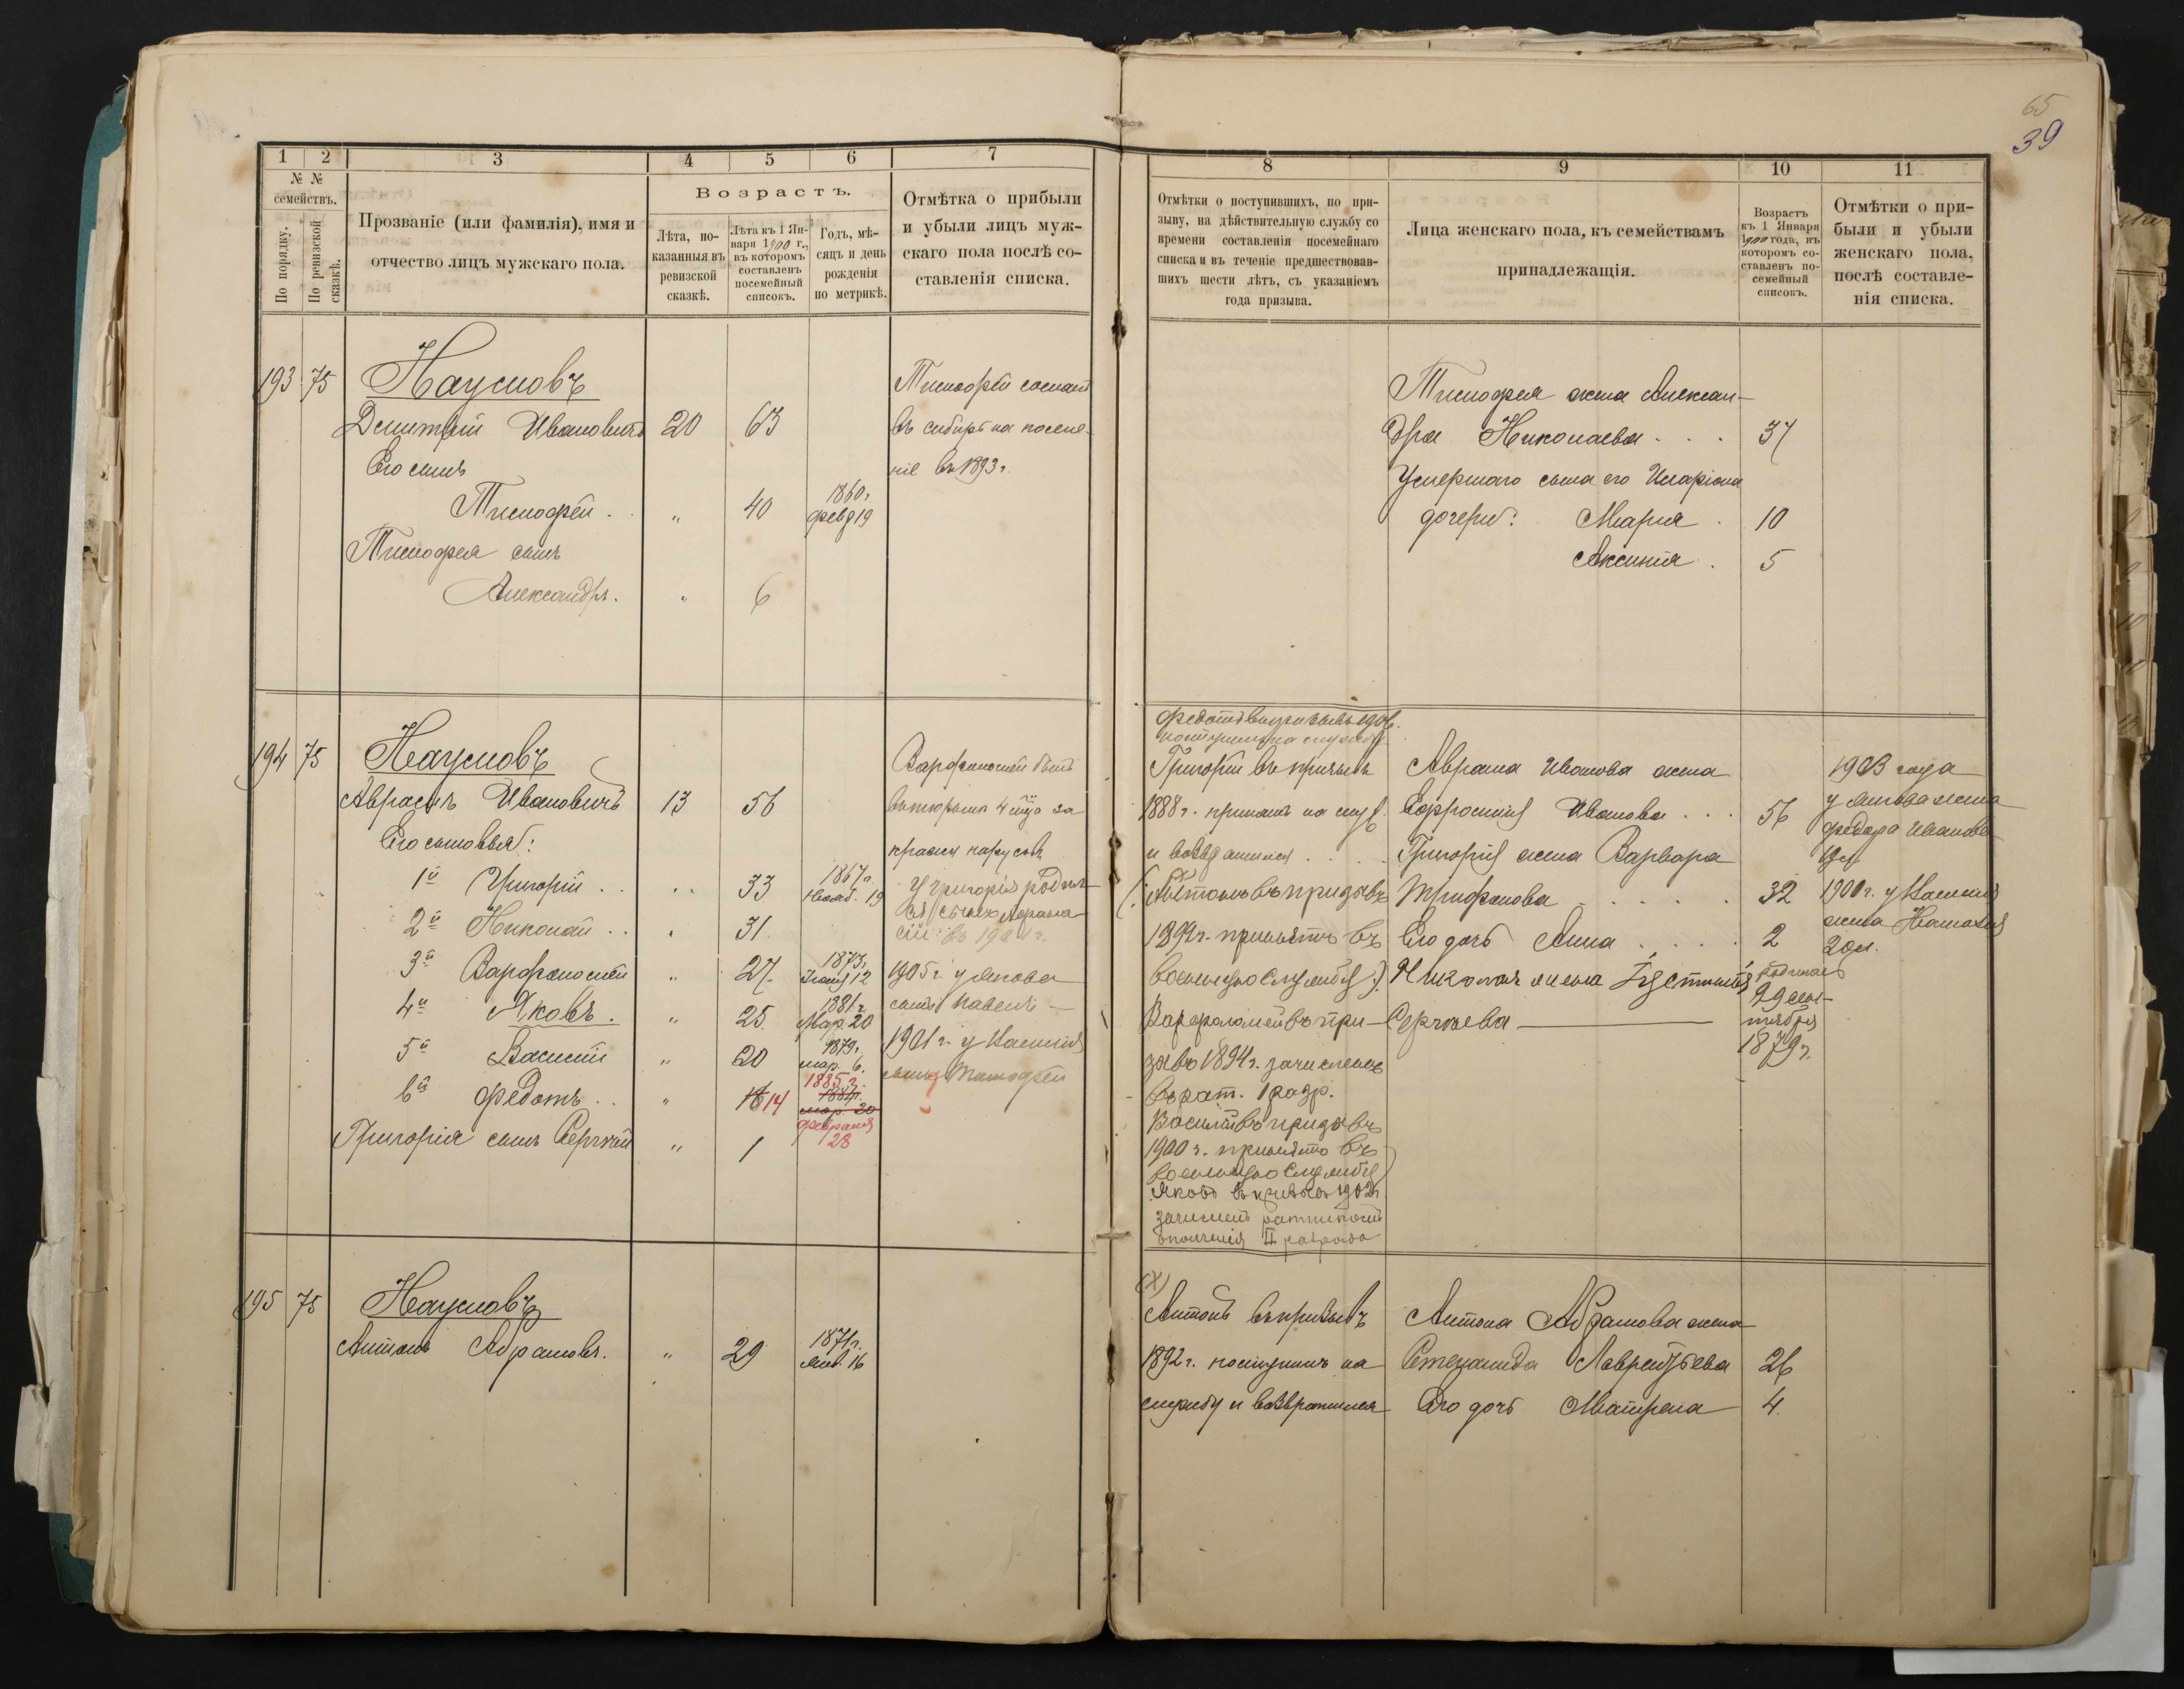 65
39
1 2 3 4 5 6 7
№ №
семействъ.
По порядку.
По ревизской сказкѣ.
Прозваніе (или фамилія), имя и
отчество лицъ мужскаго пола.
Возрастъ.
Лѣта, по-
казанныя въ
ревизской
сказкѣ.
Лѣта къ 1 Ян-
варя 1900 г.,
въ которомъ
составленъ
посемейный
списокъ.
Годъ, мѣ-
сяцъ и день
рожденія
по метрикѣ.
Отмѣтка о прибыли
и убыли лицъ муж-
скаго пола послѣ со-
ставленія списка.
193 75 Наумовъ
Дмитрій Ивановичъ 20 63
Его сынъ
Тимофей . „ 40 1860г. февр 19
Тимофея сынъ
Александръ. „ 6
Тимофей сосланъ
въ сибирь на поселе-
ніе въ 1893 г.
194 75 Наумовъ
Аврамъ Ивановичъ 13 56
Его сыновья:
1й Григорій . . 33 1867г. Нояб. 19
2й Николай . . 31.
3й Варфоломей „ 27. 1873г. 12
4й Яковъ . „ 25. 1881г Мар. 20
5й Василій „ 20 1879г. мар. 6.
6й Федотъ . . „ 16 14 1885г. 1884г. мар. 20 февраля 28
Григорія сынъ Сергѣй „ 1
Варфоломей былъ
въ тюрьмѣ 4 м-ца за
кражу
У Григорія родил-
ся сынъ
въ 1901 г.
1905 г у Якова
сынъ Павелъ —
1901 г. у Василія
сынъ Тимофей
195 75 Наумовъ
Антонъ Абрамовъ. „ 29 1871г. Янв. 16
8 9 10 11
Отмѣтки о поступившихъ, по при-
зыву, на дѣйствительную службу со
времени составленія посемейнаго
списка и въ теченіе предшествовав-
шихъ шести лѣтъ, съ указаніемъ
года призыва.
Лица женскаго пола, къ семействамъ
принадлежащія.
Возрастъ
къ 1 Января
1900 года, въ
которомъ со-
ставленъ по-
семейный
списокъ.
Отмѣтки о при-
были и убыли
женскаго пола,
послѣ составле-
нія списка.
Тимофея жена Алексан-
дра Николаева . . . 37
Умершаго сына его Иларіона
дочери: Марія . 10
Аксинія . 5
Федотъ въ призывъ 1906г.
поступилъ на службу
Григорій въ призывъ
1888 г. принятъ на служ.
и возвратился . . .
(Антонъ въ призывъ
1892 г. принятъ въ
военную службу).
Варфоломей въ при-
зывъ 1894 г. зачисленъ
въ рат. 1 разр.
Василій въ призывъ
1900 г. принятъ въ
военную службу
Яковъ въ призывъ 1902г.
зачисленъ ратникомъ
ополченія II разряда
Аврама Иванова жена
Ефросинія Иванова . . . 56
Григорія жена Варвара
Трифонова . . . . . 32
Его дочь Анна . . . . 2
Николая жена Іустинія
Сергѣева —
родилась
29 сен-
тября
1879 г.
1903 года
у Якова жена
Федора Иванова
19 л
1900 г. у Василія
жена Наталія
20 л.
(X)
Антонъ въ призывъ
1892 г. поступилъ на
службу и возвратился
Антона Абрамова жена
Степанида Лаврентьева 26
Его дочь Матрена 4.